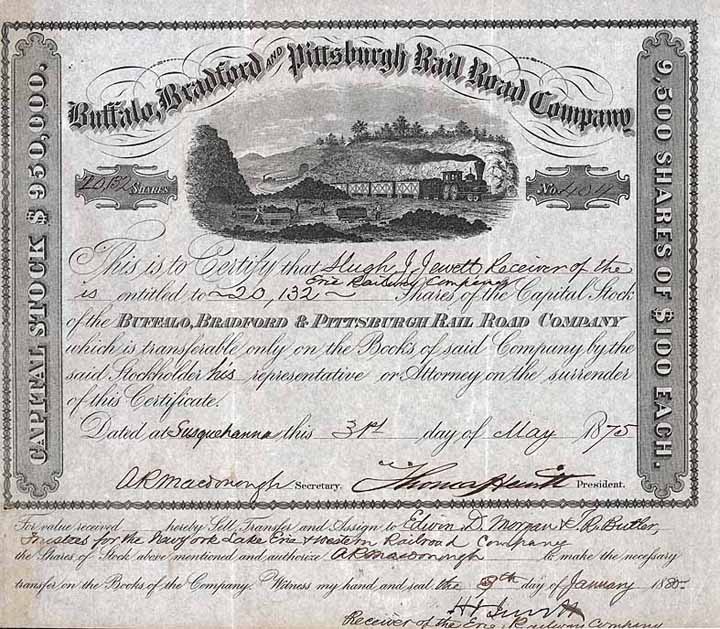 Buffalo, Bradford AND Pittsburgh Rail Road Company
CAPITAL STOCK $950,000.
9,500 SHARES OF $100 EACH.
20,132 SHARES
No. 404
This is to Certify that Hugh J. Jewett Receiver of the
Erie Railway Company
is entitled to ~20,132~ Shares of the Capital Stock
of the BUFFALO, BRADFORD & PITTSBURGH RAIL ROAD COMPANY
which is transferable only on the Books of said Company by the
said Stockholder his representative or Attorney on the surrender
of this Certificate.
Dated at Susquehanna this 31st day of May 1875
A R Macdonough Secretary. President.
For value received hereby Sell, Transfer and Assign to Edwin D. Morgan & S. R. Butler,
Trustees for the New York Lake Erie & Western Railroad Company
the Shares of Stock above mentioned and authorize A R Macdonough to make the necessary
transfer on the Books of the Company. Witness my hand and seal the day of January 1880
H J Jewett
Receiver of the Erie Railway Company